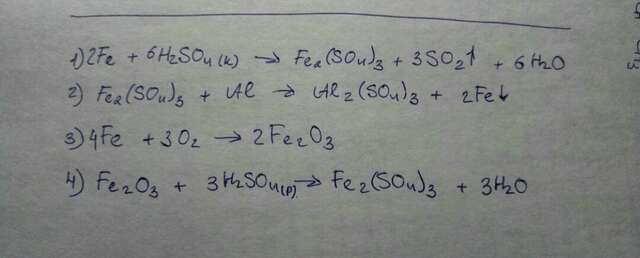 1) 2Fe + 6H2SO4(к) → Fe2(SO4)3 + 3SO2↑ + 6H2O
2) Fe2(SO4)3 + Al → Al2(SO4)3 + 2Fe↓
3) 4Fe + 3O2 → 2Fe2O3
4) Fe2O3 + 3H2SO4(р) → Fe2(SO4)3 + 3H2O